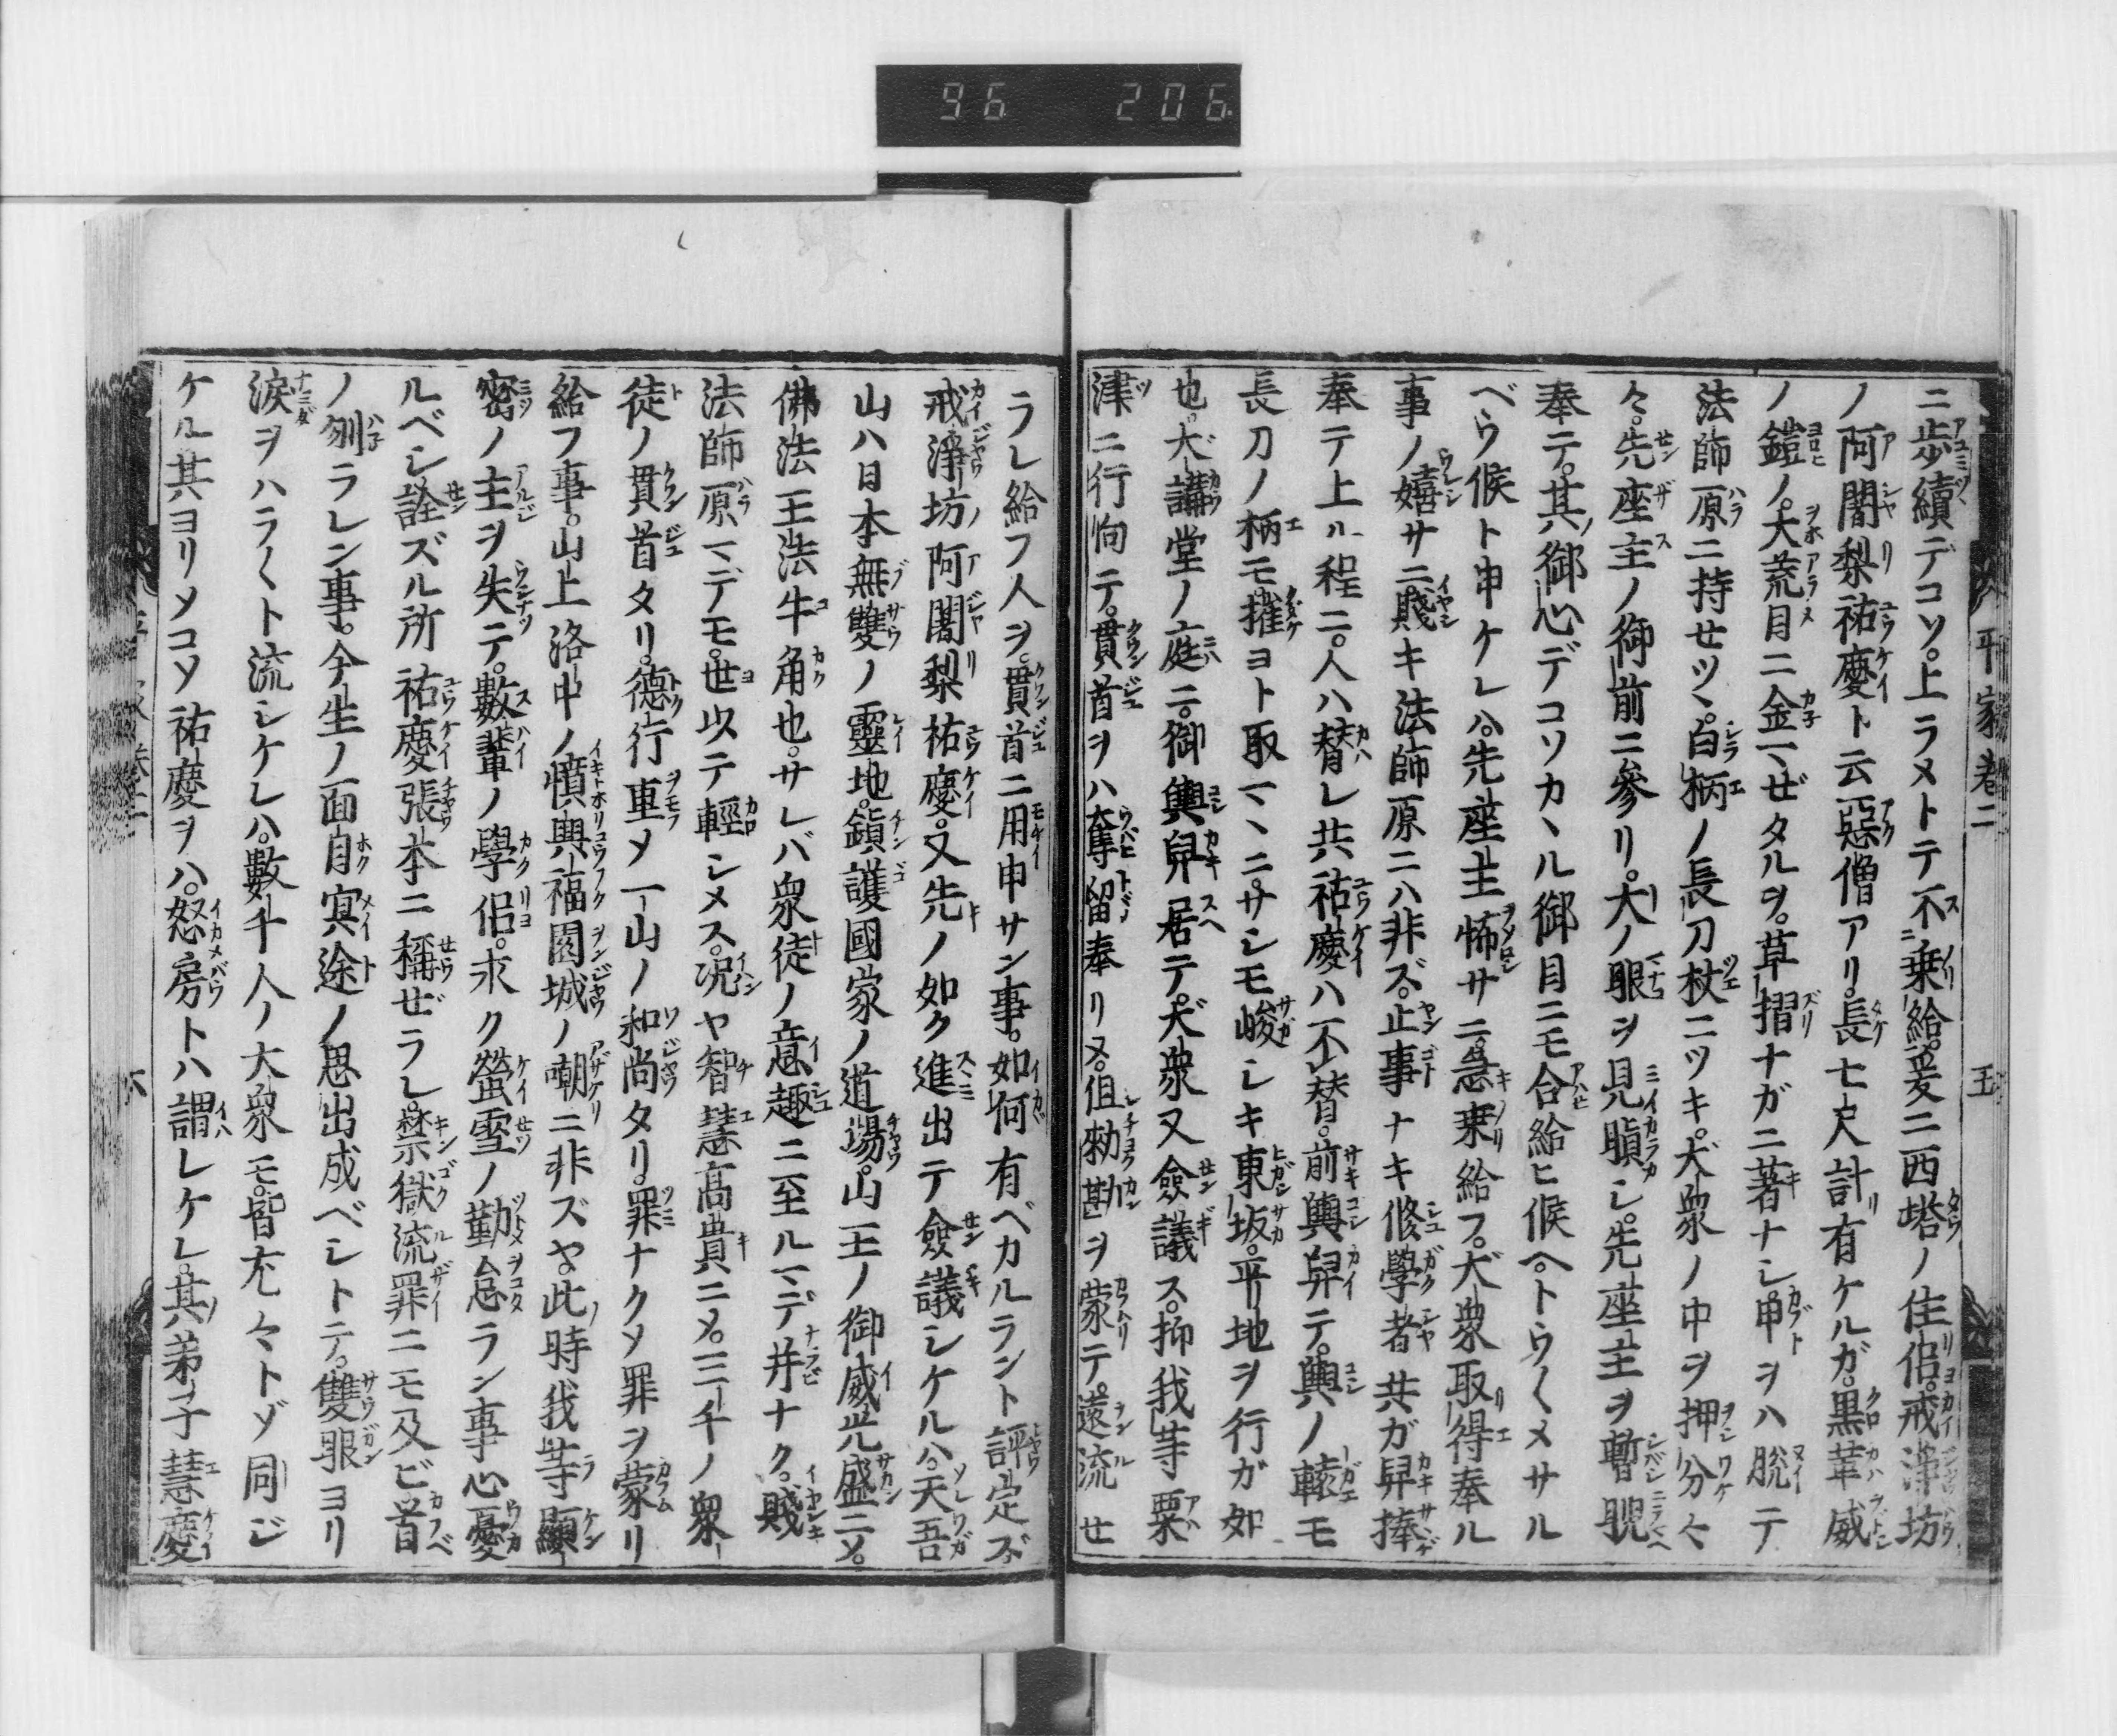 96 206
平家巻二 五
ニ歩續デコソ。上ラメトテ不乗給。爰ニ西塔ノ住侶。戒淨坊
ノ阿闍梨祐慶ト云惡僧アリ。長七尺計有ケルガ。黒革威
ノ鎧ノ。大荒目ニ金マゼタルヲ。草摺ナガニ著ナシ。甲ヲハ脱テ
法師原ニ持セツヽ。白柄ノ長刀杖ニツキ。大衆ノ中ヲ押分々
々。先座主ノ御前ニ參リ。大ノ眼ヲ見瞋シ。先座主ヲ暫睨
奉テ。其御心デコソカヽル御目ニモ合給ヒ候ヘ。トウ〳〵メサル
ベウ候ト申ケレハ。先座主怖サニ。急乗給フ。大衆取得奉ル
事ノ嬉サニ。賤キ法師原ニハ非ズ。止事ナキ修學者共ガ舁捧
奉テ上ル程ニ。人ハ替レ共祐慶ハ不替。前輿舁テ。輿ノ轅モ
長刀ノ柄モ。摧ヨト取マヽニ。サシモ峻シキ東坂。平地ヲ行ガ如
也。大講堂ノ庭ニ。御輿舁居テ。大衆又僉議ス。抑我等粟
津ニ行向テ。貫首ヲハ奪留奉リヌ。但勅勘ヲ蒙テ。遠流せ
ラレ給フ人ヲ。貫首ニ用申サン事。如何有ベカルラント評定ズ
戒淨坊ノ阿闍梨祐慶。又先ノ如ク進出テ僉議シケルハ。夫吾
山ハ日本無雙ノ靈地。鎮護國家ノ道場。山王ノ御威光盛ニソ。
佛法王法牛角也。サレバ衆徒ノ意趣ニ至ルマデ并ナク。賤
法師原マデモ。世以テ輕シメス。况ヤ智慧高貴ニメ。三千ノ衆
徒ノ貫首タリ。德行重メ一山ノ和尚タリ。罪ナクメ罪ヲ蒙リ
給フ事。山上洛中ノ憤。興福園城ノ嘲ニ非ズヤ。此時我等顯
密ノ主ヲ失テ。數輩ノ學侶。永ク螢雪ノ勤怠ラン事心憂カ
ルベシ。詮ズル所祐慶張本ニ稱ぜラレ。禁獄流罪ニモ及ビ首
ノ刎ラレン事。今生ノ面目冥途ノ思出成ベシトテ。雙眼ヨリ
淚ヲハラ〳〵ト流シケレハ。數千人ノ大衆モ。皆尤々トゾ同ジ
ケル其ヨリメコソ祐慶ヲハ。怒房トハ謂レケレ。其弟子慧慶
六